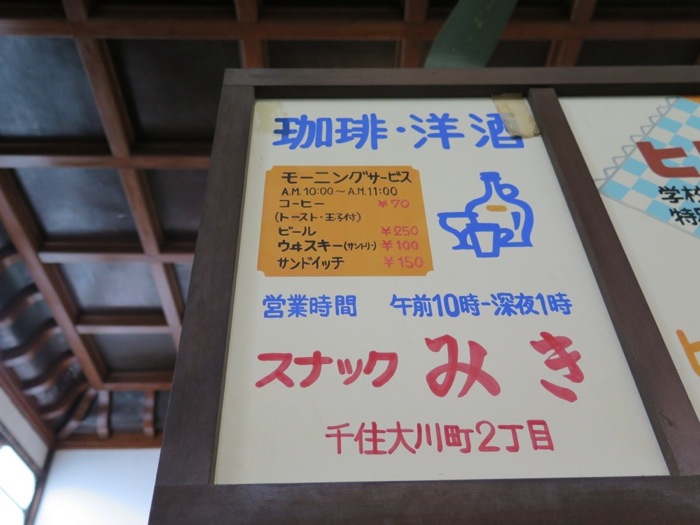 珈琲・洋酒
モーニングサービス
A.M.10:00～A.M.11:00
コーヒー ￥70
(トースト・玉子付)
ビール ￥250
ウヰスキー(サントリー) ￥100
サンドイッチ ￥150
営業時間 午前10時-深夜1時
スナック みき
千住大川町2丁目
ヒ
学校
特